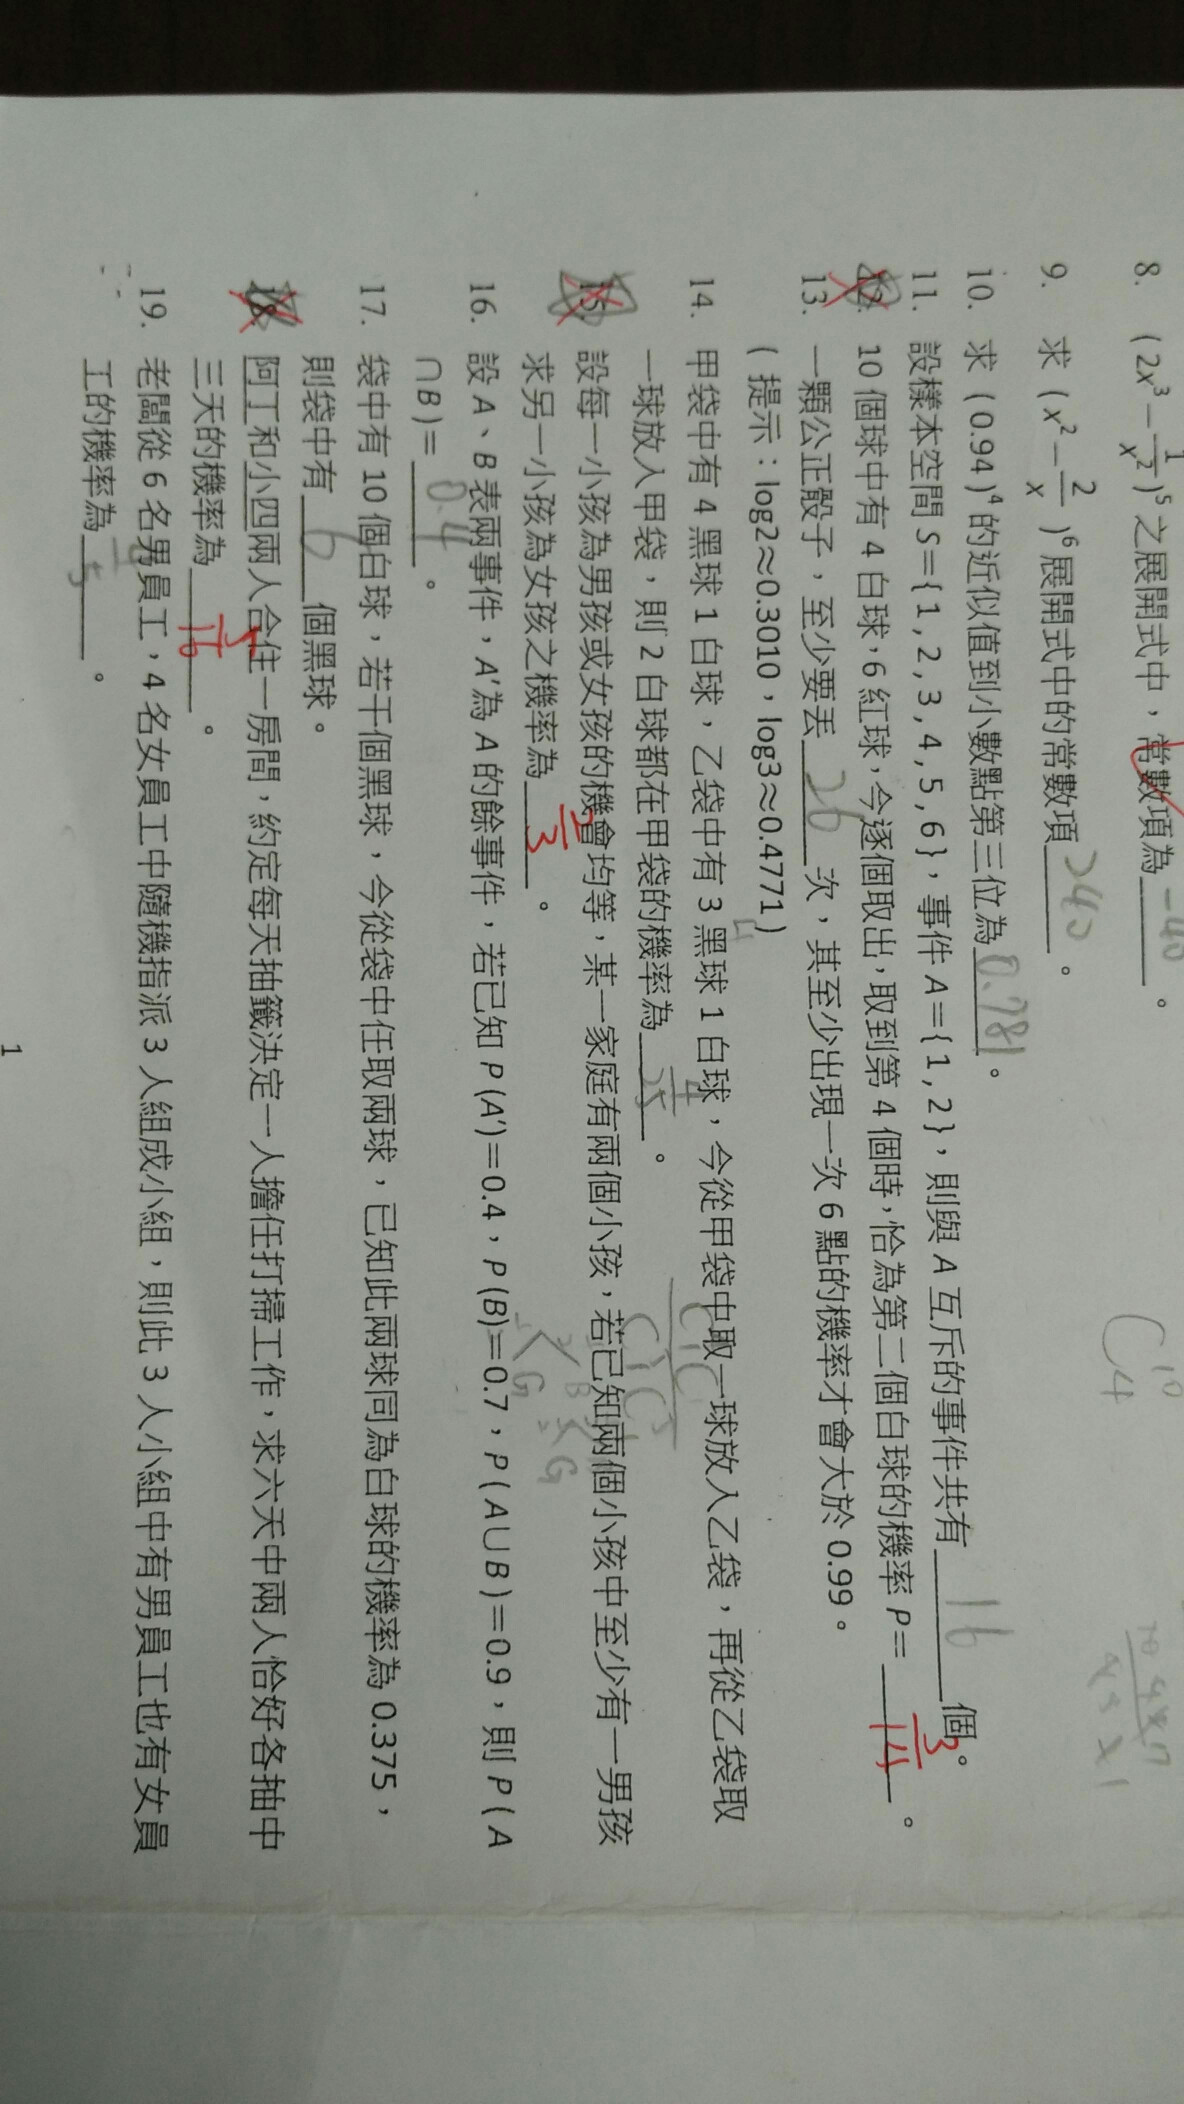 8. (2x³－1/x²)⁵之展開式中，常數項為 -40 。
9. 求 (x²－2/x)⁶展開式中的常數項 240 。
10. 求 (0.94)⁴的近似值到小數點第三位為 0.781 。
11. 設樣本空間 S＝{1,2,3,4,5,6}，事件 A＝{1,2}，則與 A 互斥的事件共有 16 個。
12. 10 個球中有 4 白球，6 紅球，今逐個取出，取到第 4 個時，恰為第二個白球的機率 P＝ 3/14 。
13. 一顆公正骰子，至少要丟 26 次，其至少出現一次 6 點的機率才會大於 0.99。
(提示：log2≈0.3010，log3≈0.4771)
14. 甲袋中有 4 黑球 1 白球，乙袋中有 3 黑球 1 白球，今從甲袋中取一球放入乙袋，再從乙袋取
一球放入甲袋，則 2 白球都在甲袋的機率為 4/25 。
15. 設每一小孩為男孩或女孩的機會均等，某一家庭有兩個小孩，若已知兩個小孩中至少有一男孩
求另一小孩為女孩之機率為 2/3 。
16. 設 A、B 表兩事件，A′為 A 的餘事件，若已知 P(A′)＝0.4，P(B)＝0.7，P(A∪B)＝0.9，則 P(A
∩B)＝ 0.4 。
17. 袋中有 10 個白球，若干個黑球，今從袋中任取兩球，已知此兩球同為白球的機率為 0.375，
則袋中有 6 個黑球。
18. 阿丁和小四兩人合住一房間，約定每天抽籤決定一人擔任打掃工作，求六天中兩人恰好各抽中
三天的機率為 5/16 。
19. 老闆從 6 名男員工，4 名女員工中隨機指派 3 人組成小組，則此 3 人小組中有男員工也有女員
工的機率為 4/5 。
1